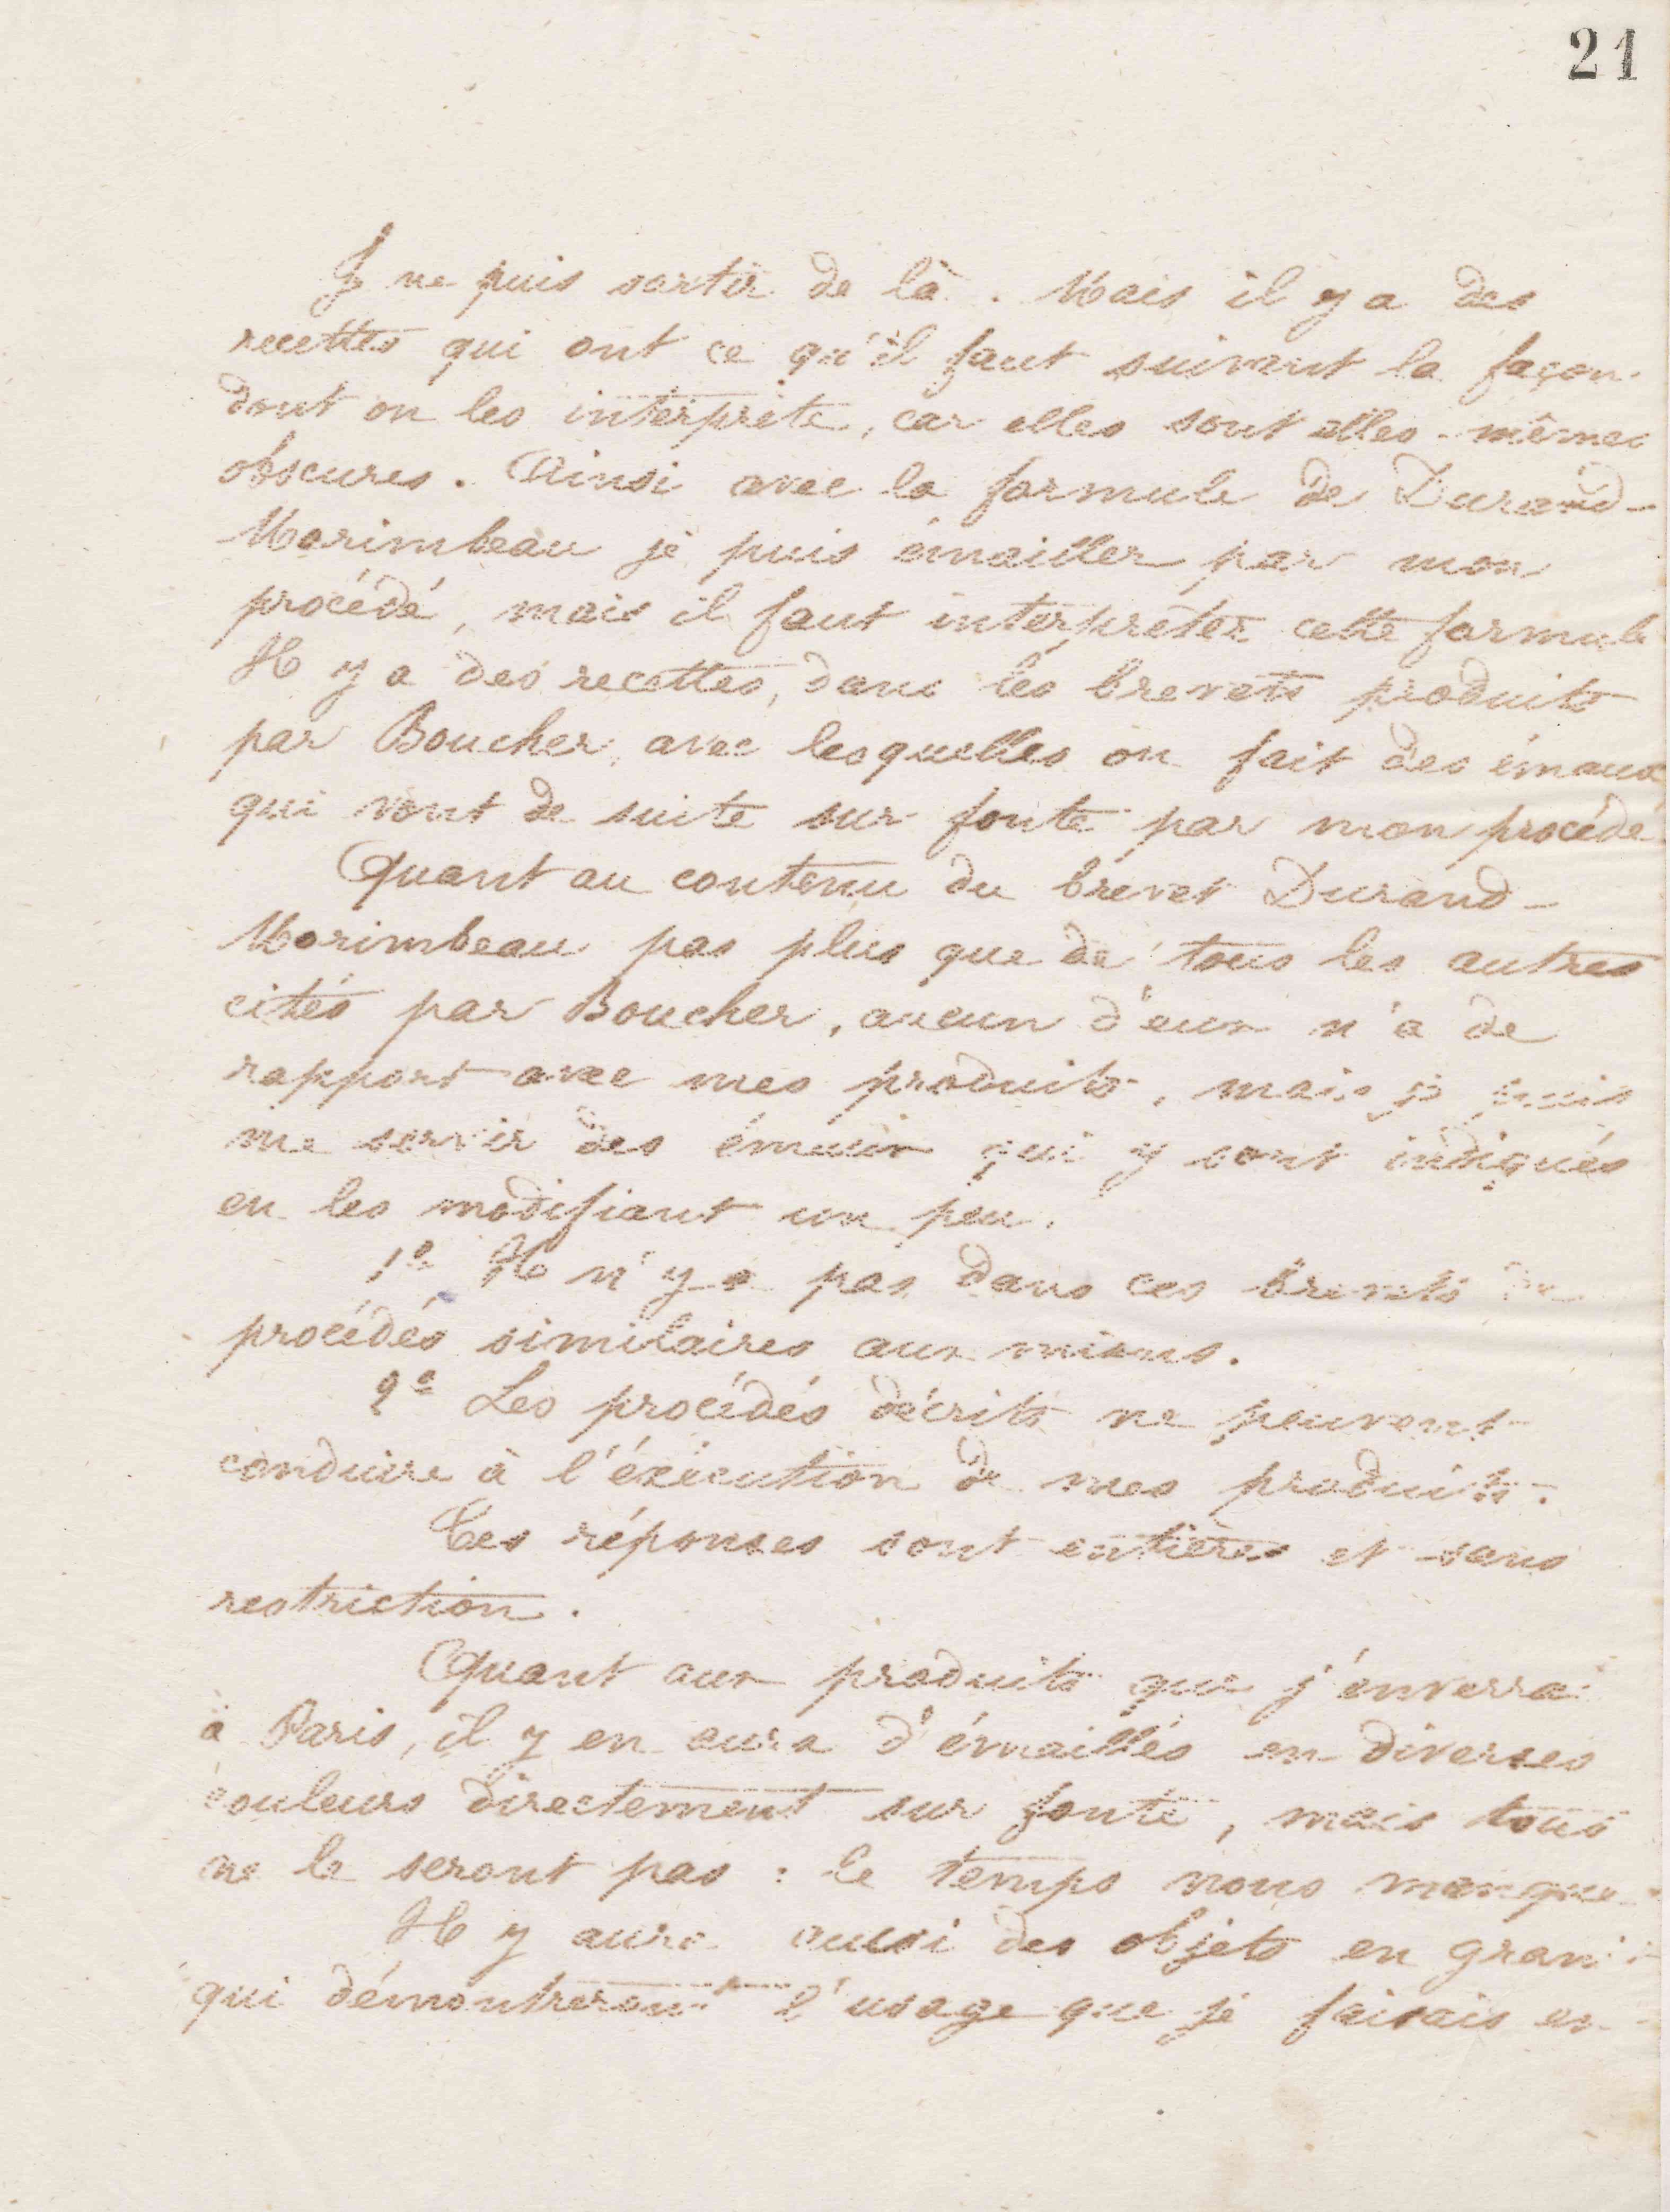 21
Je ne puis sortir de là. Mais il y a des
recettes qui ont ce qu'il faut suivant la façon
dont on les interprète, car elles sont elles-mêmes
obscures. Ainsi avec la formule de Durand-
Morimbeau je puis émailler par mon
procédé, mais il faut interpréter cette formule
Il y a des recettes, dans les brevets produits
par Boucher, avec lesquelles on fait des émaux
qui vont de suite sur fonte par mon procédé
Quant au contenu du brevet Durand-
Morimbeau pas plus que de tous les autres
cités par Boucher, aucun d'eux n'a de
rapport avec mes produits, mais je puis
me servir des émaux qui y sont indiqués
en les modifiant un peu.
1º Il n'y a pas dans ces brevets de
procédés similaires aux miens.
2º Les procédés décrits ne peuvent
conduire à l'exécution de mes produits.
Ces réponses sont entières et sans
restriction.
Quant aux produits que j'enverrai
à Paris, il y en aura d'émaillés en diverses
couleurs directement sur fonte, mais tous
ne le seront pas : le temps nous manque
Il y aura aussi des objets en
qui démontreront l'usage que je faisais en